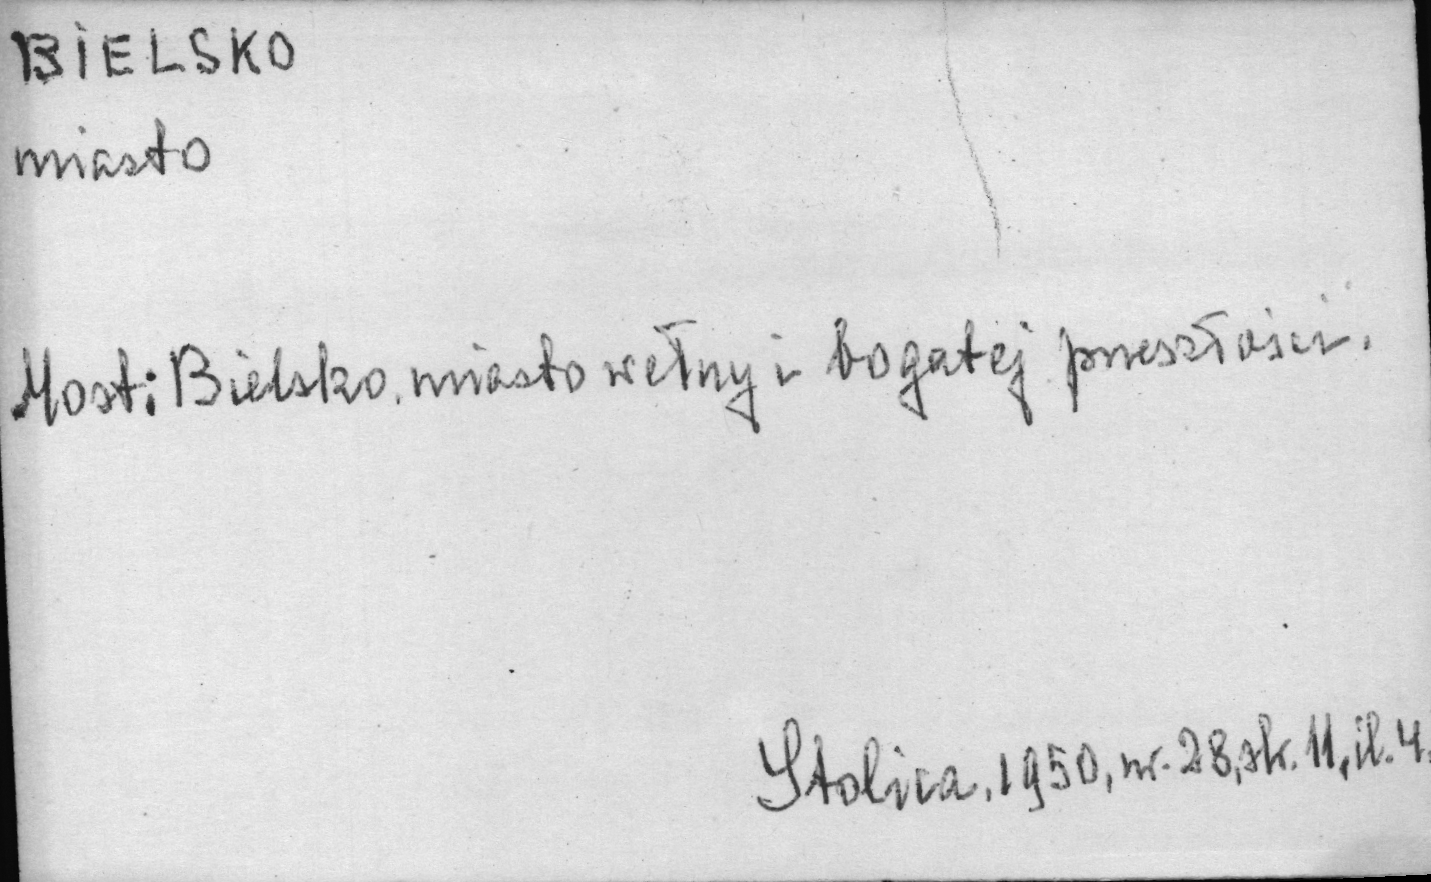 BIELSKO
miasto
Most: Bielsko. miasto wełny i bogatej przeszłości.
Stolica, 1950, nr. 28, str. 11, il. 4.